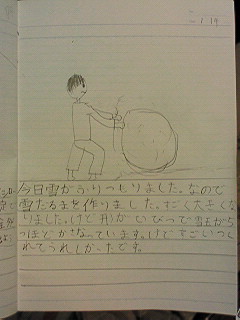 1/19
今日雪がふりつもりました。なので
雪だるまを作りました。すごく大きくな
りました。けど形がいびつで雪玉が5
つほどかさなっています。けどすごいつく
れてうれしかったです。